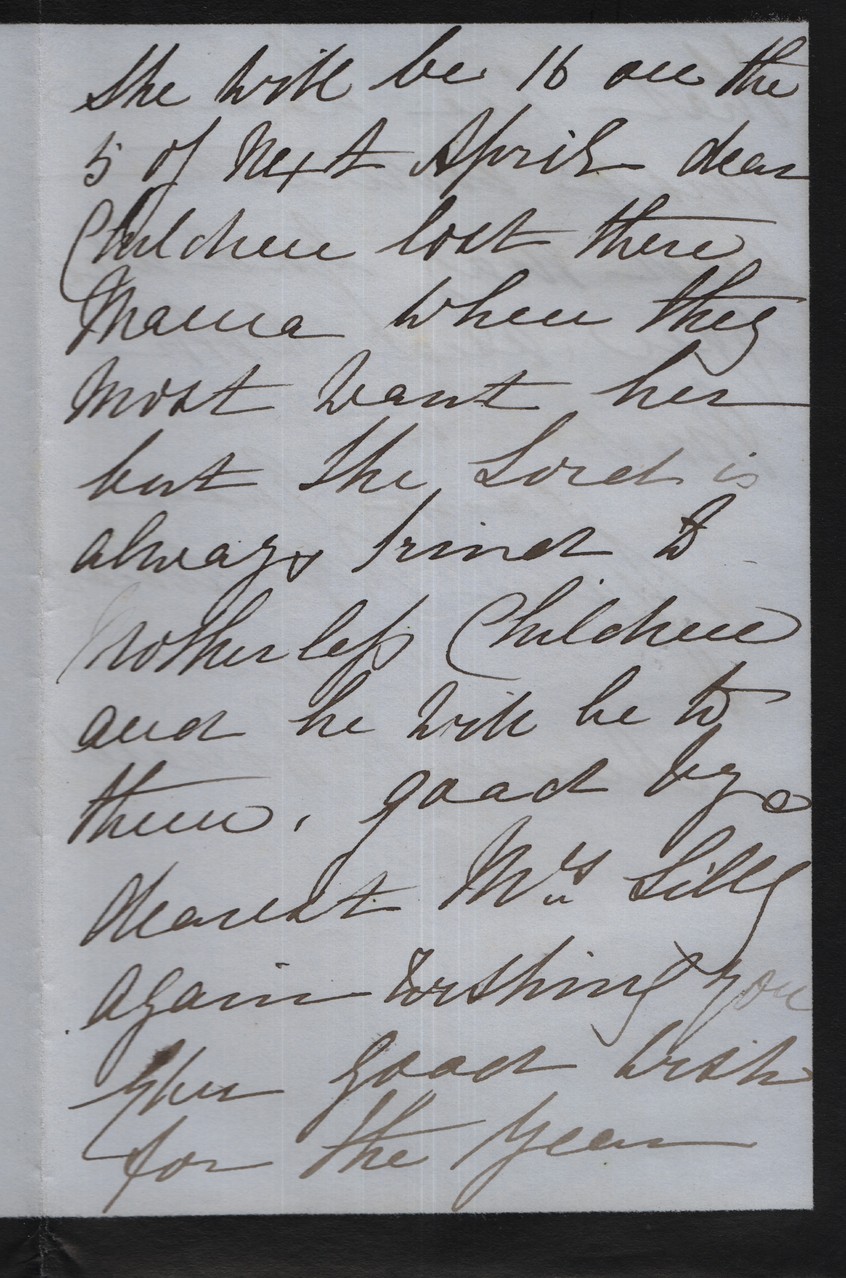 She will be 16 on the
5 of Next April dear
Children lost there
Mama when they
Most want her
but the Lord is
always kind to
Motherless Children
and he will be to
them. good bye
dearest Mrs Lilly
again wishing you
good wish
for the Year